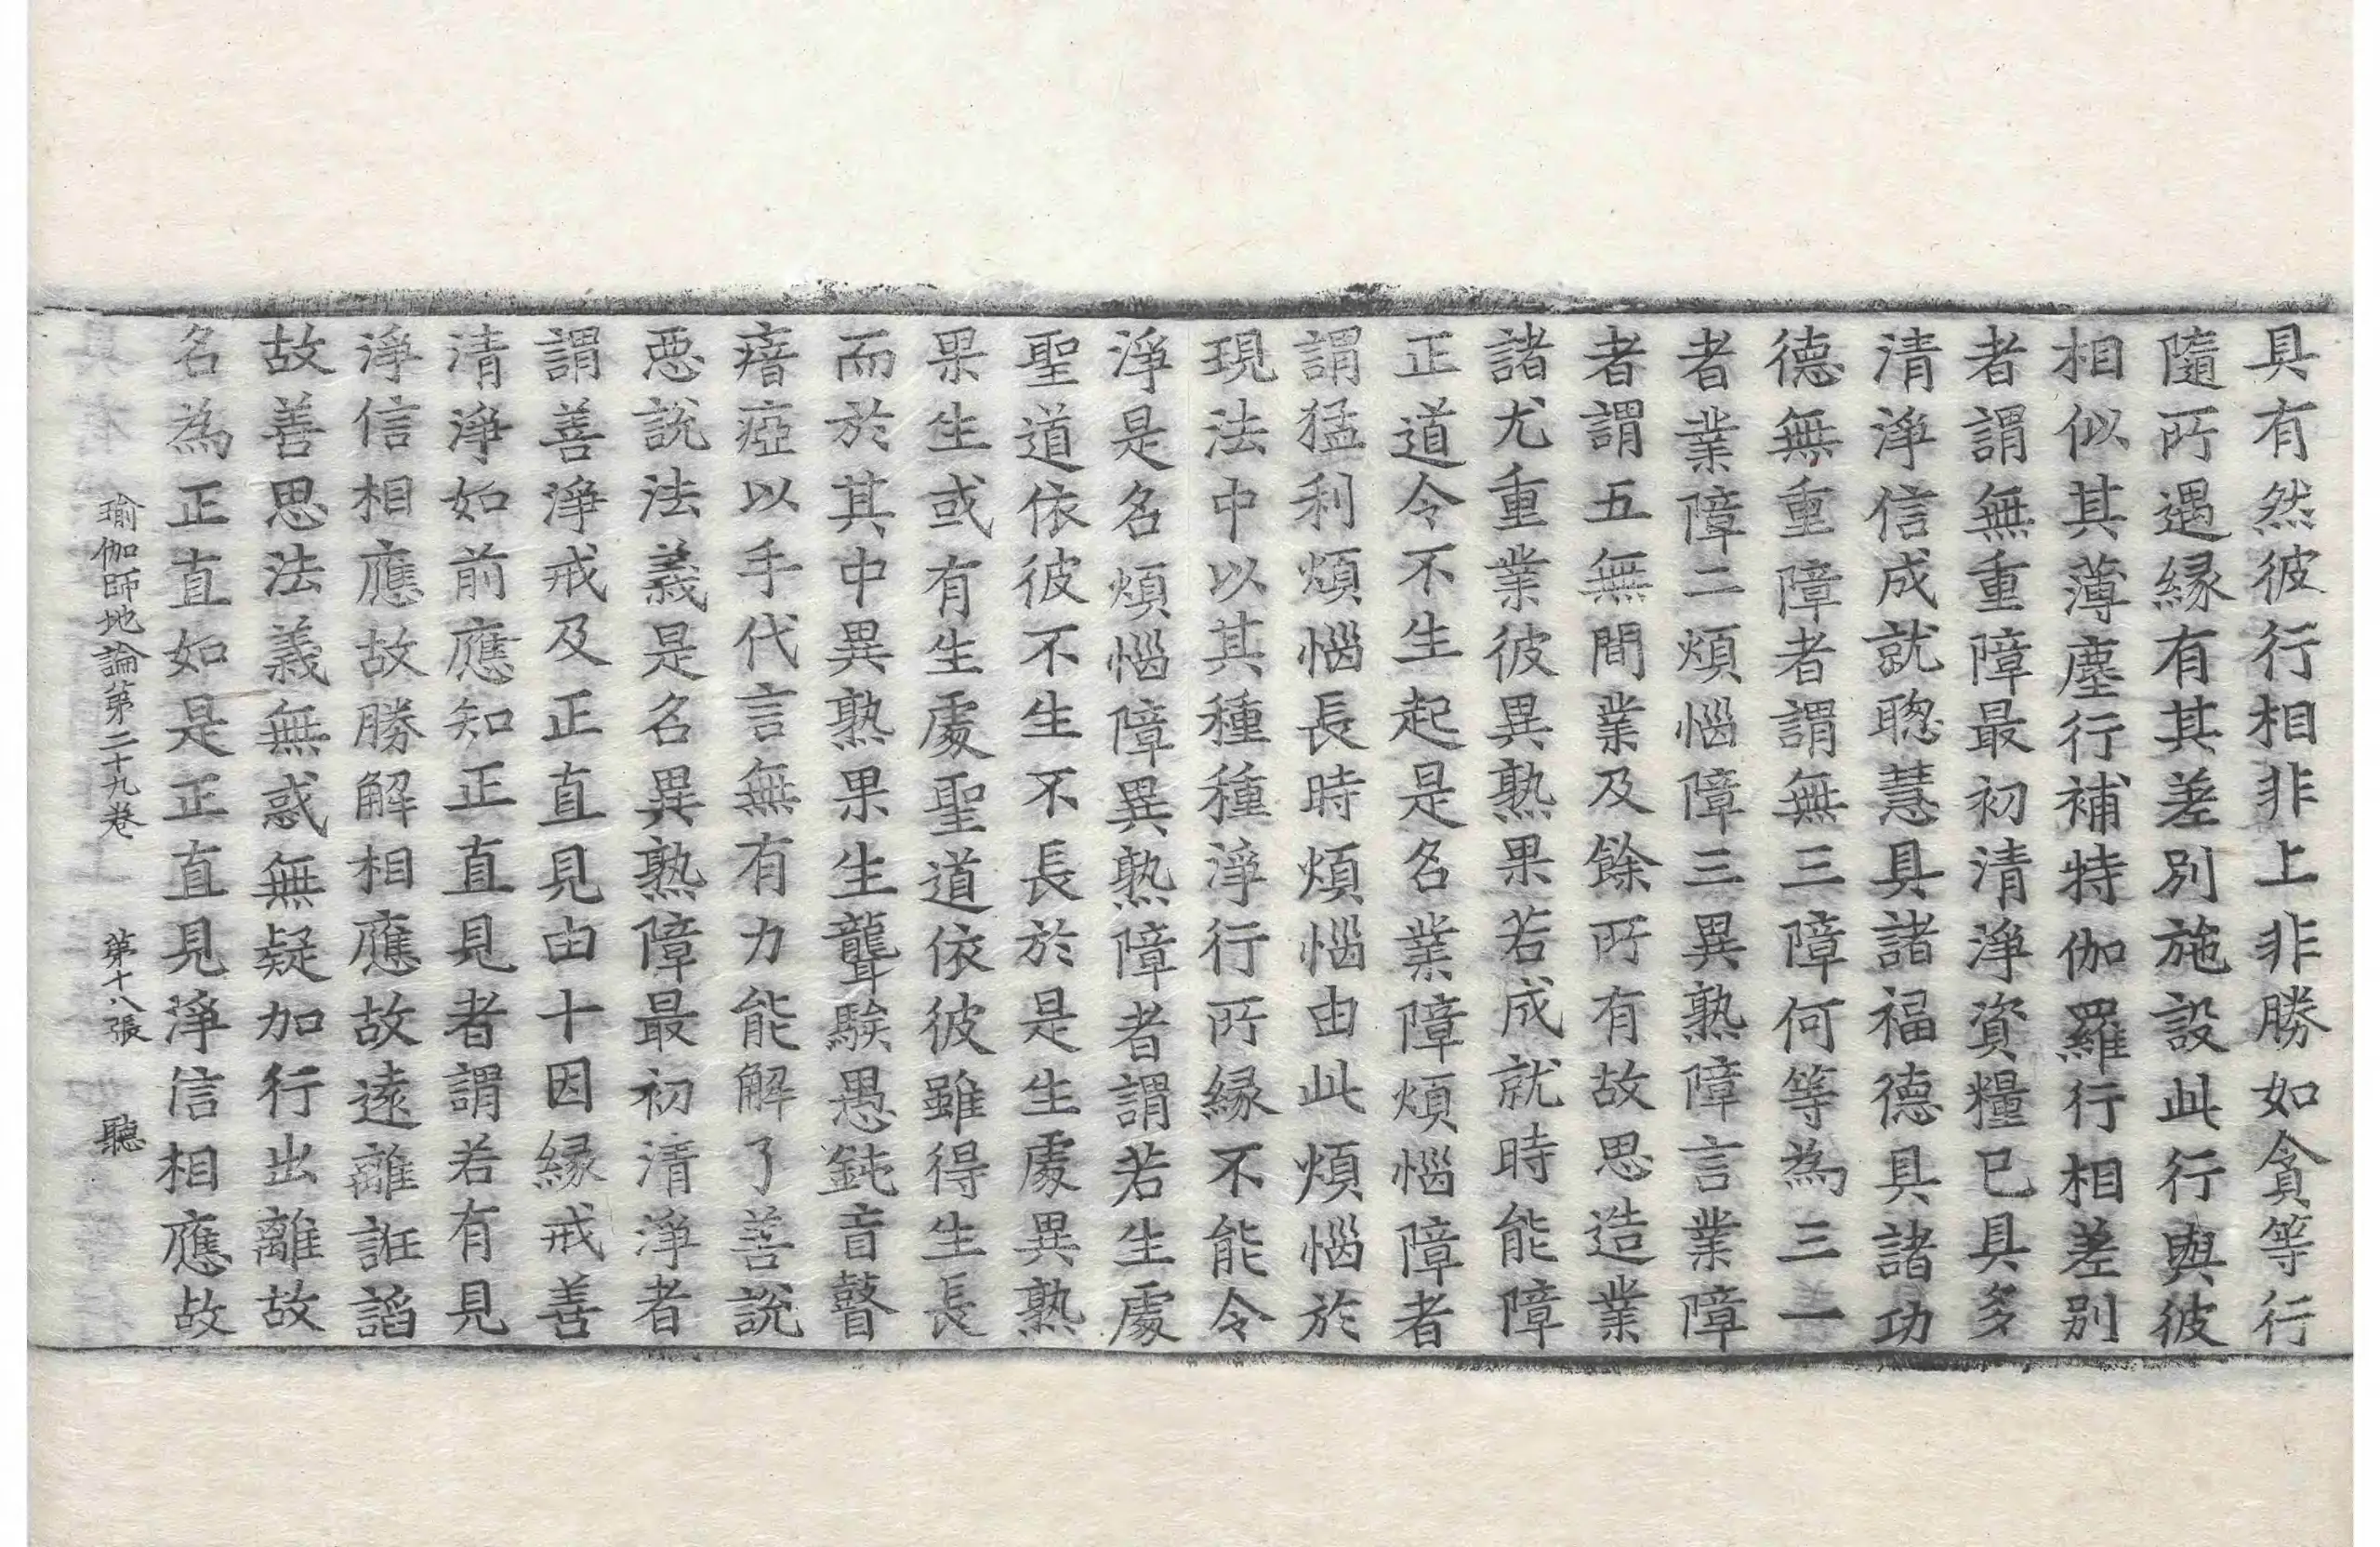 具有然彼行相非上非勝如貪等行
隨所遇緣有其差別施設此行與彼
相似其薄塵行補特伽羅行相差別
者謂無重障最初清淨資糧已具多
清淨信成就聰慧具諸福德具諸功
德無重障者謂無三障何等為三一
者業障二煩惱障三異熟障言業障
者謂五無間業及餘所有故思造業
諸尤重業彼異熟果若成就時能障
正道令不生起是名業障煩惱障者
謂猛利煩惱長時煩惱由此煩惱於
現法中以其種種淨行所緣不能令
淨是名煩惱障異熟障者謂若生處
聖道依彼不生不長於是生處異熟
果生或有生處聖道依彼雖得生長
而於其中異熟果生聾騃愚鈍盲瞽
瘖瘂以手代言無有力能解了善說
惡說法義是名異熟障最初清淨者
謂善淨戒及正直見由十因緣戒善
清淨如前應知正直見者謂若有見
淨信相應故勝解相應故遠離誑諂
故善思法義無惑無疑加行出離故
名為正直如是正直見淨信相應故
瑜伽師地論第二十九卷 第十八張 聽